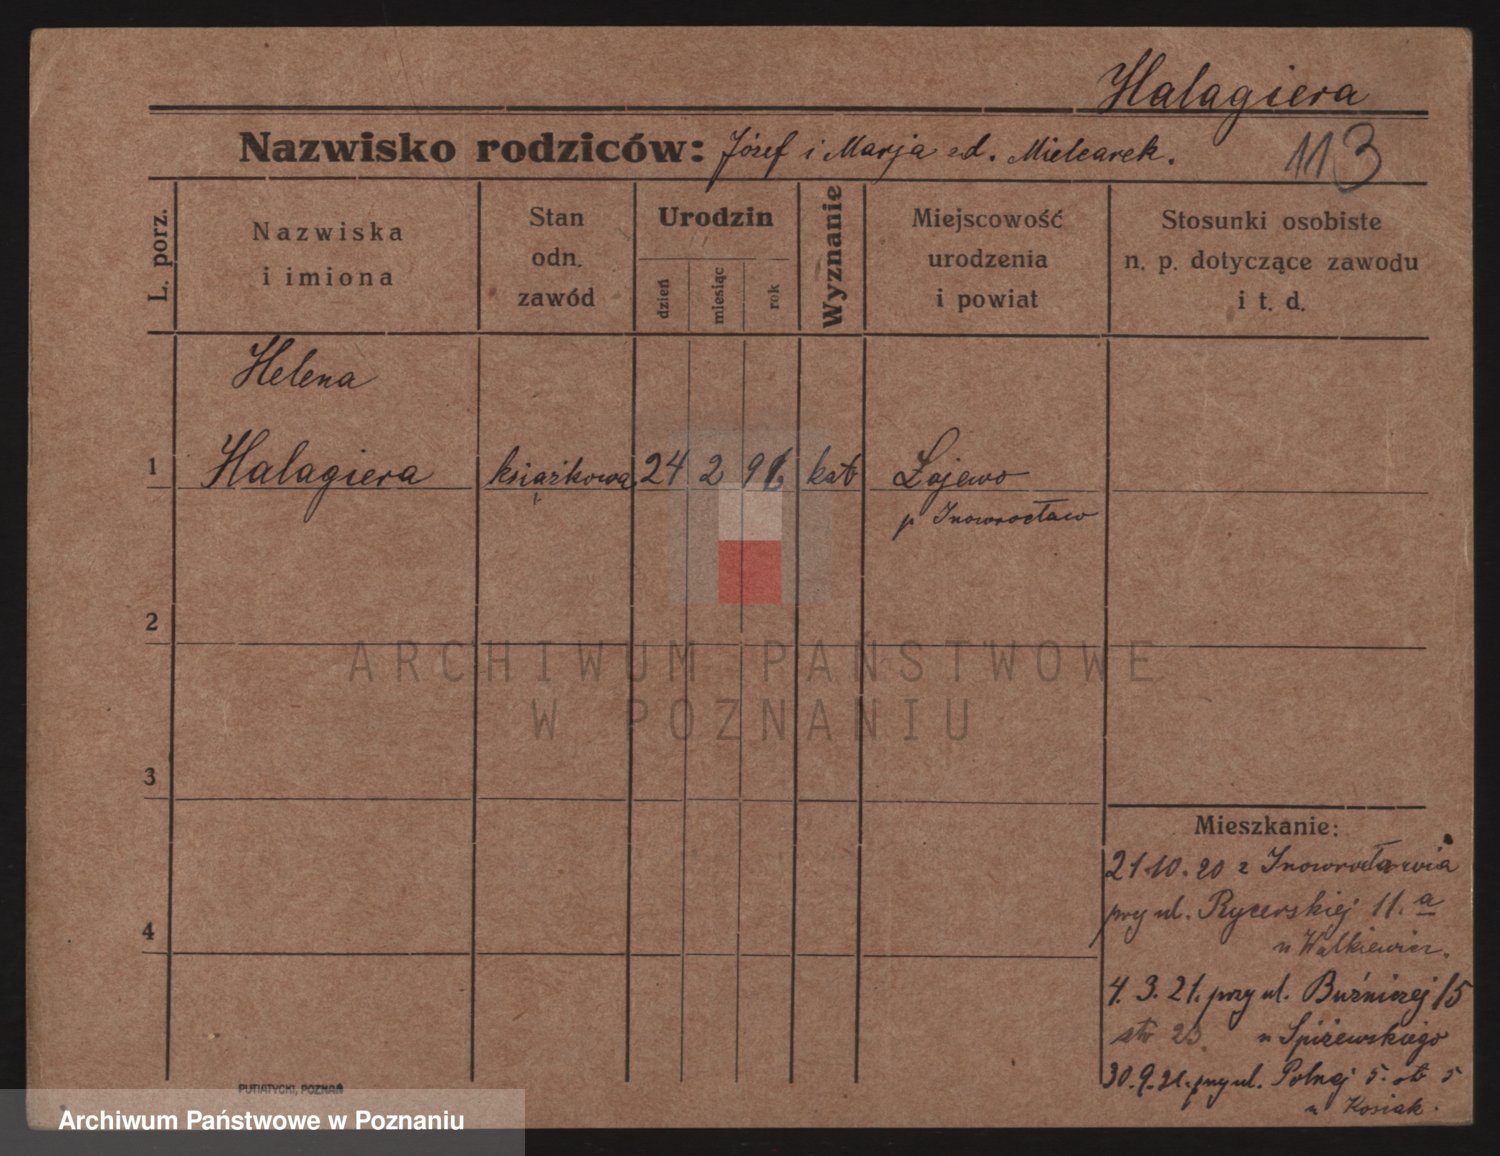 Halagiera
Nazwisko rodziców: Józef i Marja zd. Mielcarek.
113
L. porz.
Nazwiska
i imiona
Stan
odn.
zawód
Urodzin
dzień
miesiąc
rok
Wyznanie
Miejscowość
urodzenia
i powiat
Stosunki osobiste
n. p. dotyczące zawodu
i t. d.
Helena
1 Halagiera książkowa 24 2 kat Łojewo
p Inowrocław
2
ARCHIWUM PAŃSTWOWE
W POZNANIU
3
Mieszkanie:
21.10.20 z Inowrocławia
przy ul. Rycerskiej 11.a
u Walkiewicz.
4
4. 3. 21. przy ul. Buźniczej 15
str 23. u Spiżewskiego
30.9.21. przy ul. Polnej 5. str 5
u Kosiak.
PUTIATYCKI, POZNAŃ
Archiwum Państwowe w Poznaniu